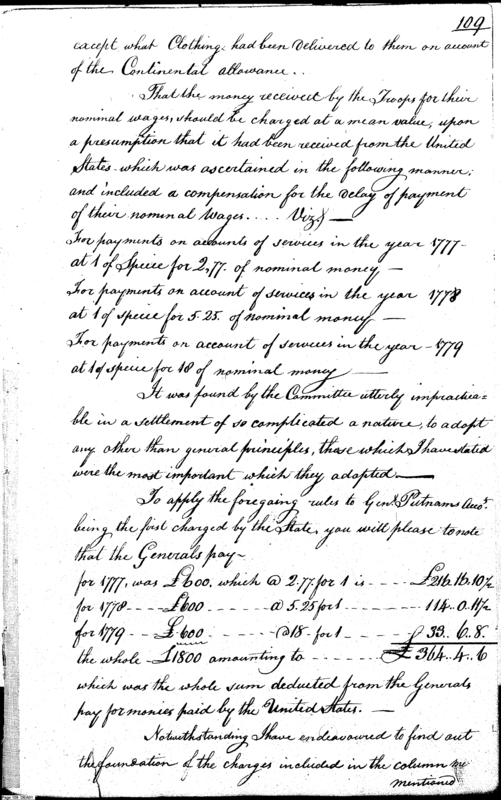 109
except what Clothing had been delivered to them on account
of the Continental allowance..
That the money received by the Troops for their
nominal wages, should be charged at a mean value, upon
a presumption that it had been received from the United
States which was ascertained in the following manner;
and included a compensation for the delay of payment
of their nominal wages.... Viz.t —
For payments on accounts of services in the year 1777-
at 1 of Speice for 2,77. of nominal money —
For payments on account of services in the year 1778
at 1 of speice for 5.25. of nominal money —
For payments on account of services in the year - 1779
at 1 of speice for 18 of nominal money —
It was found by the Committee utterly impractica-
ble in a settlement of so complicated a nature, to adopt
any other than general principles, those which I have stated
were the most important which they adopted —
To apply the foregoing rules to Genl. Putnams Acco.t
being the first charged by the State, you will please to note
that the Generals pay-
for 1777, was £600, which @ 2.77 for 1 is ---- £216.16.10½
for 1778 ---- £600 ---- @ 5.25 for 1 ---- 114.0.11½
for 1779 -- £600 ---- @ 18 - for 1 ---- £33..6.8.
the whole £1800 amounting to ---- £364..4..6
which was the whole sum deducted from the Generals
pay for monies paid by the United States. —
Notwithstanding I have endeavoured to find out
the foundation of the charges included in the column
mentioned